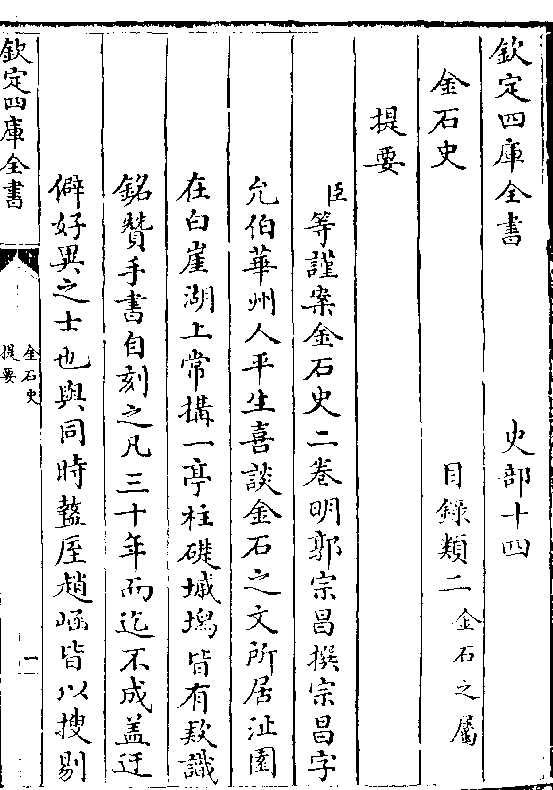 欽定四庫全書　史部十四
金石史　目録類二金石之屬
提要
臣等謹案金石史二卷明郭宗昌撰宗昌字
允伯華州人平生喜談金石之文所居沚園
在白崖湖上常搆一亭柱礎墄塢皆有欵識
銘贊手書自刻之凡三十年而迄不成盖迂
僻好異之士也與同時盩厔趙崡皆以搜剔
欽定四庫全書
金石史
提要
一